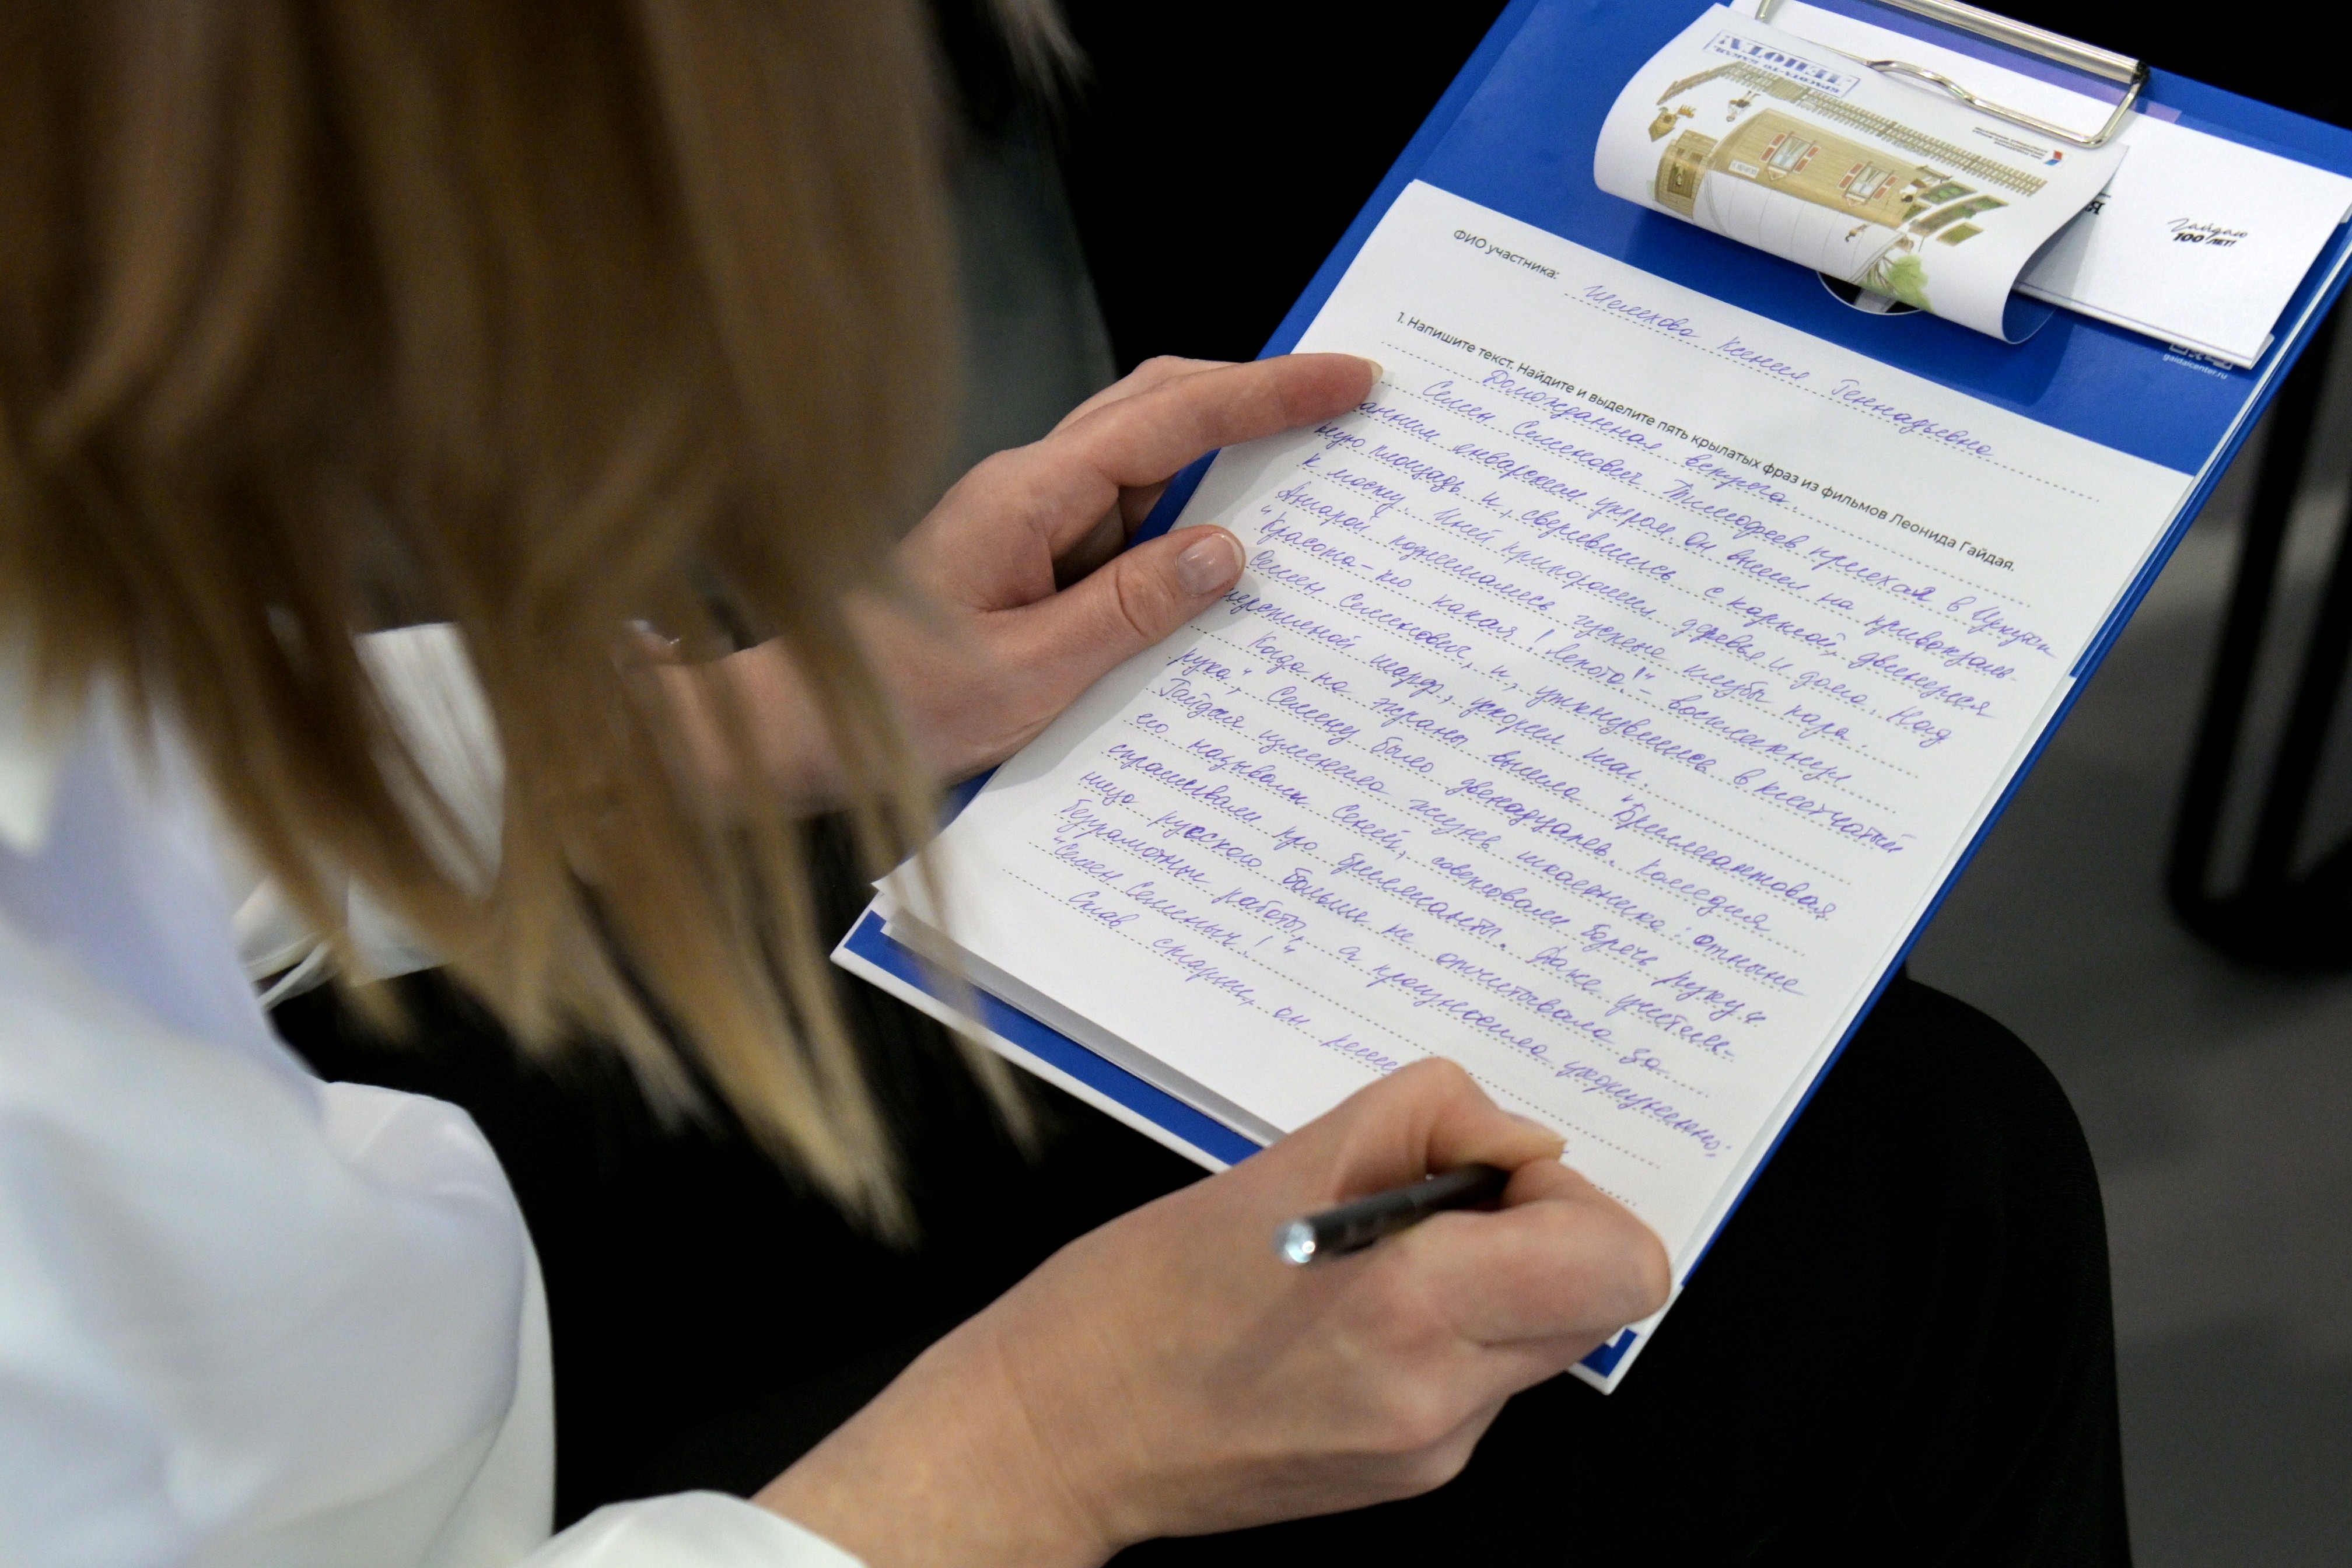 Гайдаю
100 ЛЕТ!
gaidaicenter.ru
ФИО участника: Шелехова Ксения Геннадьевна
1. Напишите текст. Найдите и выделите пять крылатых фраз из фильмов Леонида Гайдая.
Долгожданная встреча.
Семен Семенович Тимофеев приехал в Иркутск
ранним январским утром. Он вышел на привокзаль-
ную площадь и, сверившись с картой, двинулся
к мосту. Иней приукрасил деревья и дома. Над
Ангарой поднимались густые клубы пара.
"Красота-то какая! Лепота!" - воскликнул
Семен Семенович, и, укутнувшись в клетчатый
шерстяной шарф, ускорил шаг.
Когда на экраны вышла "Бриллиантовая
рука", Семену было двенадцать. Комедия
Гайдая изменила жизнь школьника: отныне
его называли Сеней, советовали беречь руку и
спрашивали про бриллианты. Даже учитель-
ница русского больше не отчитывала за
безграмотные работы, а произносила укоризненно:
"Семен Семеныч!"
Став старше, он